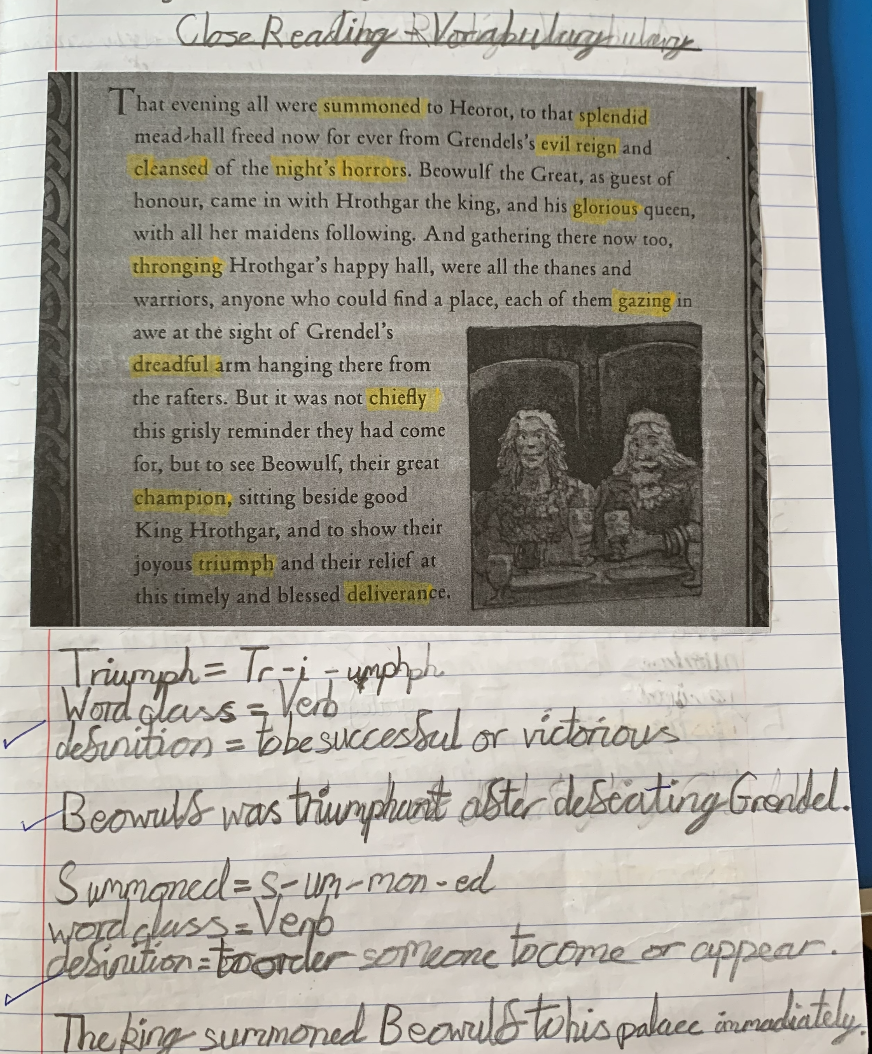 Close Reading + Vocabulary
That evening all were summoned to Heorot, to that splendid
mead-hall freed now for ever from Grendels's evil reign and
cleansed of the night's horrors. Beowulf the Great, as guest of
honour, came in with Hrothgar the king, and his glorious queen,
with all her maidens following. And gathering there now too,
thronging Hrothgar's happy hall, were all the thanes and
warriors, anyone who could find a place, each of them gazing in
awe at the sight of Grendel's
dreadful arm hanging there from
the rafters. But it was not chiefly
this grisly reminder they had come
for, but to see Beowulf, their great
champion, sitting beside good
King Hrothgar, and to show their
joyous triumph and their relief at
this timely and blessed deliverance.
Triumph = Tr-i-umphph
Word class = Verb
definition = to be successful or victorious
Beowulf was triumphant after defeating Grendel.
Summoned = s-um-mon-ed
word class = Verb
definition = to order someone to come or appear.
The king summoned Beowulf to his palace immadiately.